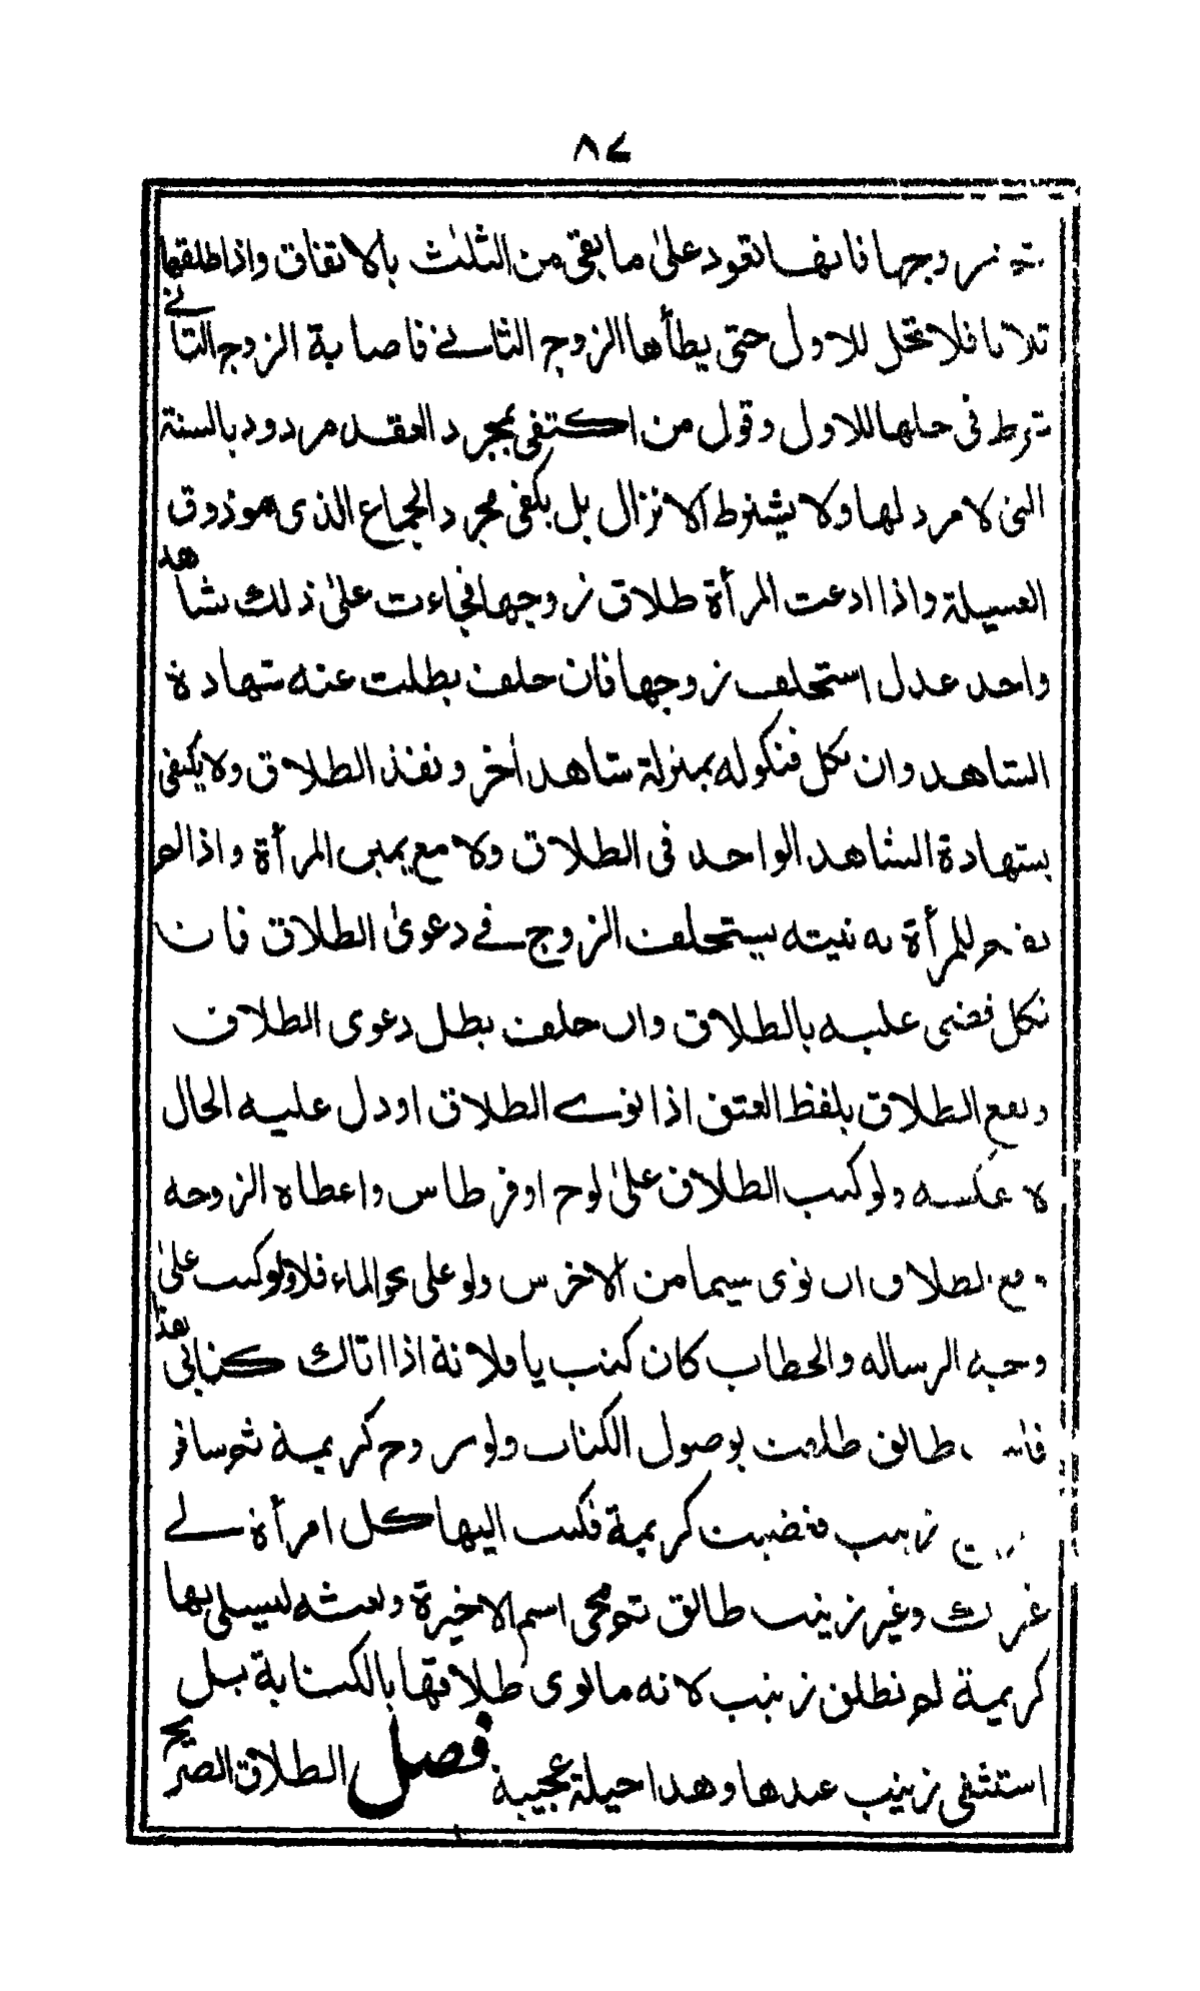 ٨٤
زوجها فانها تعود على ما بقى من الثلث بالاتفاق واذا طلقها
ثلاثا فلا تحل للاول حتى يطأها الزوج الثانے فاصابة الزوج الثانے
شرط فى حلها للاول وقول من اكتفى بمجرد العقد مردود بالسنة
التى لا مرد لها ولا يشترط الانزال بل يكفى مجرد الجماع الذى هو ذوق
العسيلة واذا ادعت المرأة طلاق زوجها فجاءت على ذلك بشاهد
واحد عدل استحلف زوجها فان حلف بطلت عنه شهادة
الشاهد وان نكل فنكوله بمنزلة شاهد اٰخر ونفذ الطلاق ولا يكفى
بشهادة الشاهد الواحد فى الطلاق ولا مع يمين المرأة واذا لم
يقم للمرأة به بينة يستحلف الزوج فے دعوىٰ الطلاق فان
نكل قضى عليه بالطلاق وان حلف بطل دعوى الطلاق
ويقع الطلاق بلفظ العتق اذا نوے الطلاق او دل عليه الحال
لا عكسه ولو كتب الطلاق علىٰ لوح او قرطاس واعطاه الزوجة
وقع الطلاق ان نوى سيما من الاخرس ولو على نحو الماء فلا ولو كتب علىٰ
وجه الرسالة والخطاب كان كتب يا فلانة اذا اتاك كتابى هذا
فانت طالق طلقت بوصول الكتاب ولو تزوج كريمة ثم سافر
زينب فغضبت كريمة فكتب اليها كل امرأة لے
غيرك وغير زينب طالق ثم محى اسم الاخيرة وبعثه ليسلى بها
كريمة لم تطلق زينب لانه ما نوى طلاقها بالكتابة بل
استثنى زينب عندها وهذا حيلة عجيبة فصل الطلاق الصريح